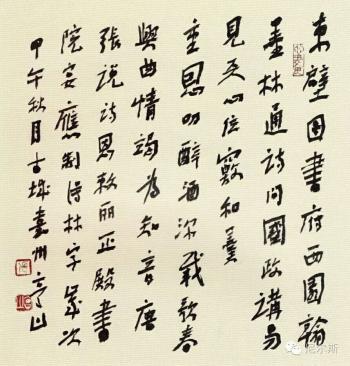 東壁图書府西園翰
墨林通诗问國政講易
見天心位竊和羹
重恩叨醉酒深載歌春
興曲情竭為知音唐
張说诗恩敕丽正殿書
院宴應制得林字歲次
甲午秋月古城袁州
尼尔斯